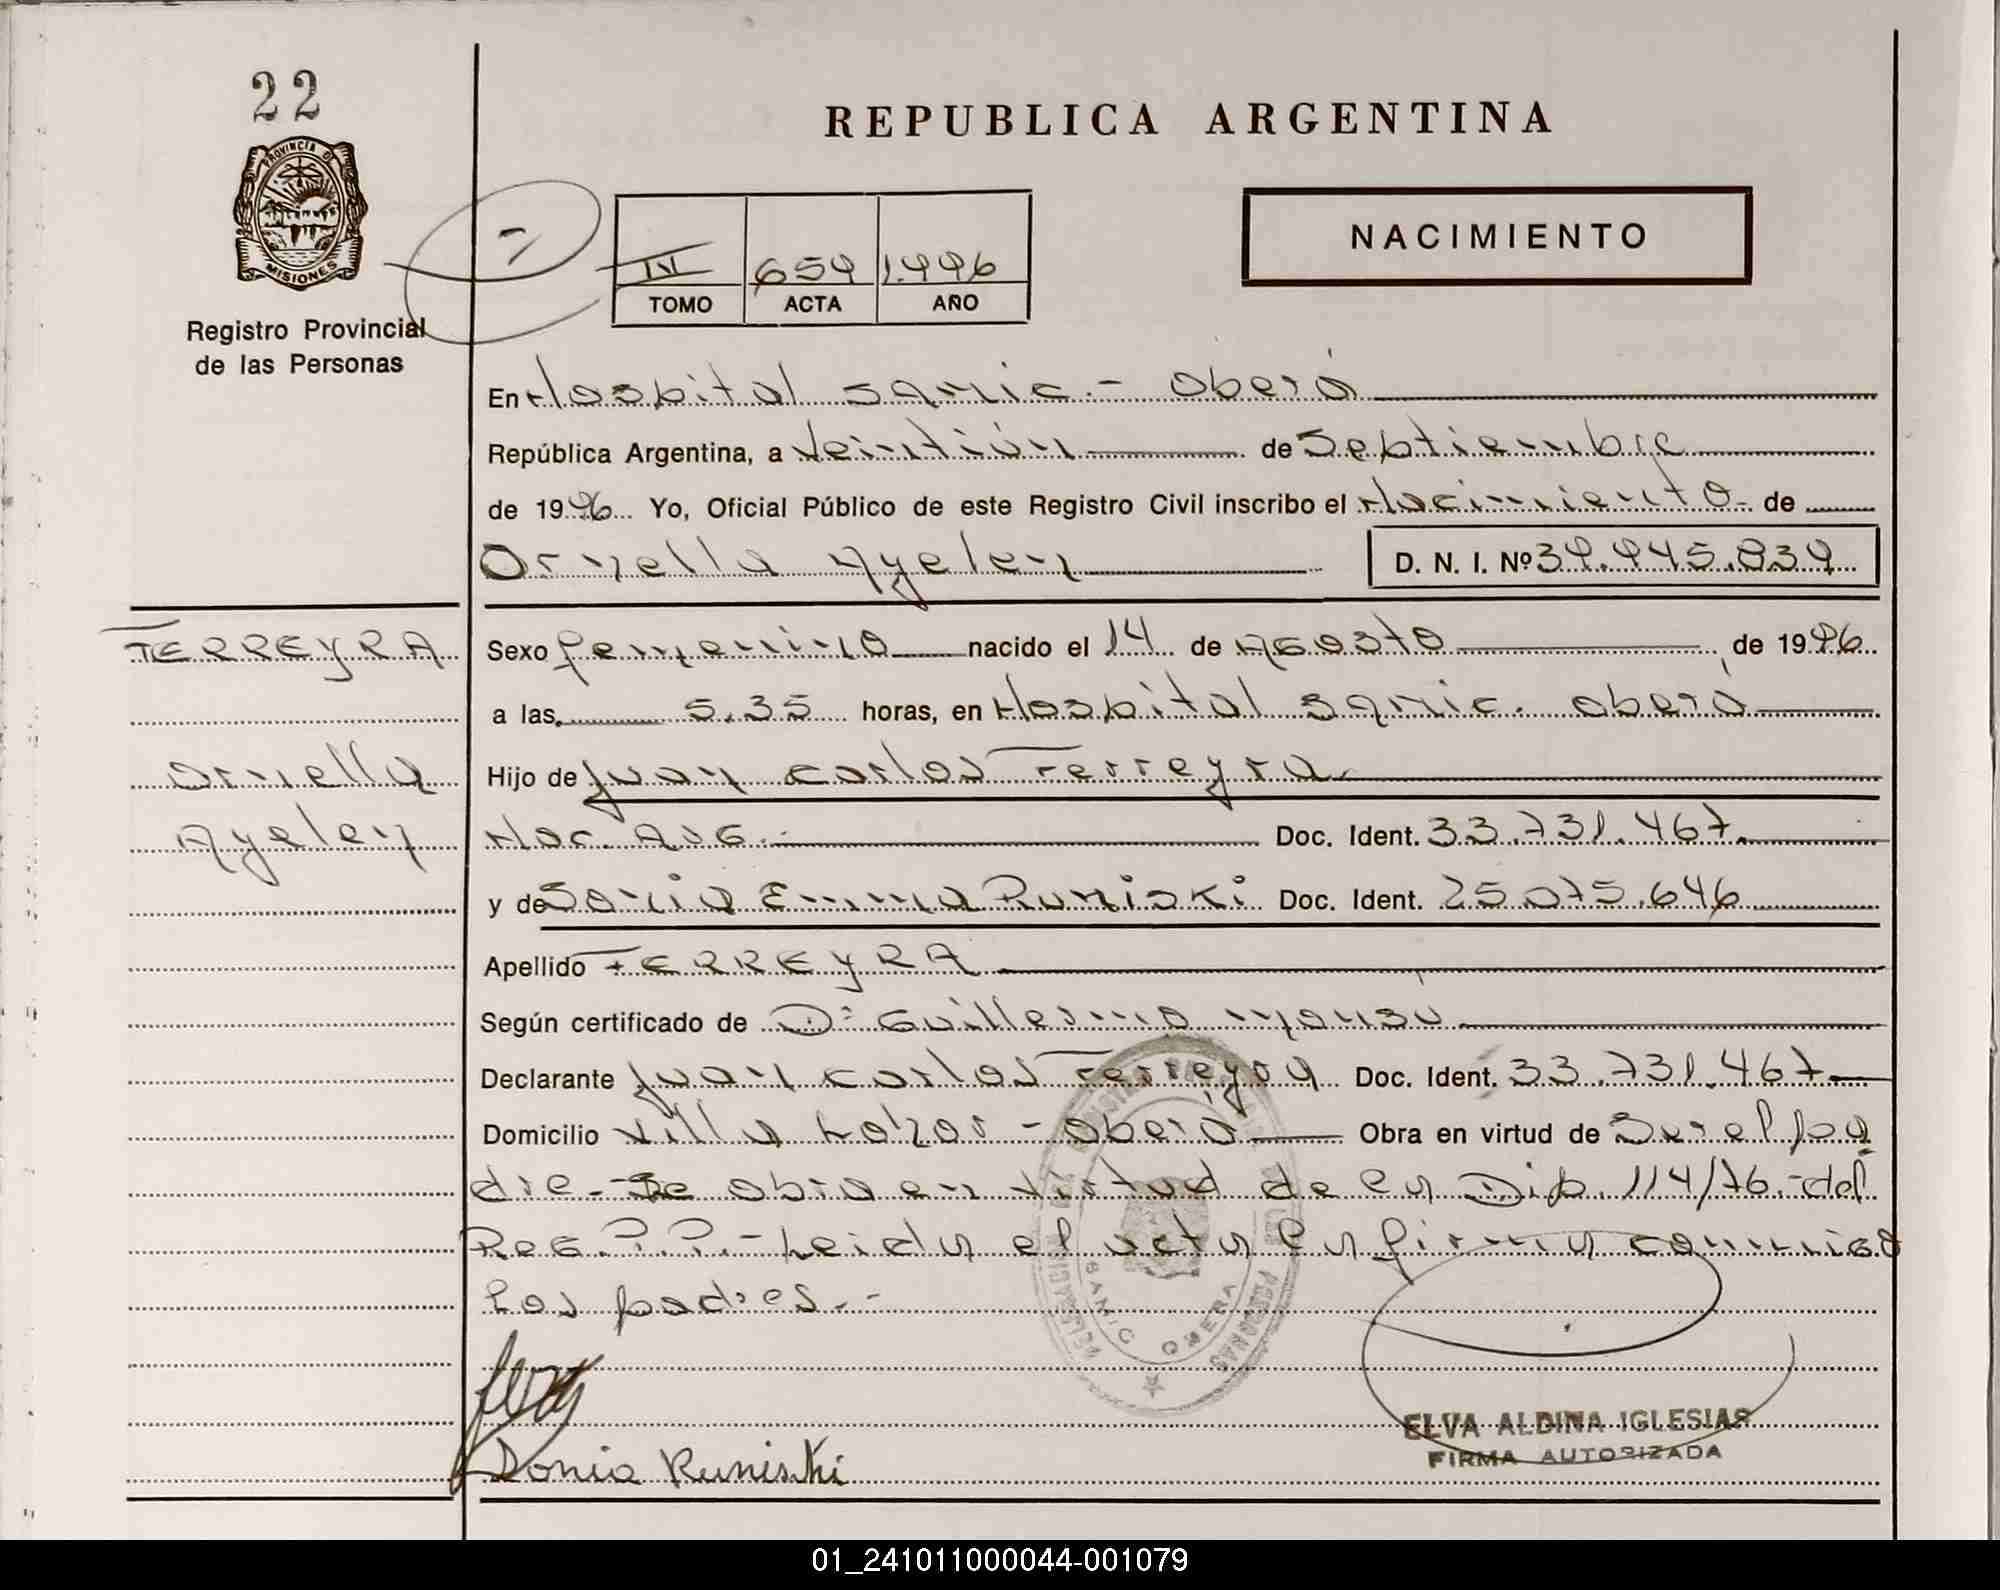 22
REPUBLICA ARGENTINA
PROVINCIA D
MISIONES
Registro Provincial
de las Personas
NACIMIENTO
IV 659 1.996
TOMO ACTA AÑO
En Hospital Samic.- Oberá
República Argentina, a Veintiún de Septiembre
de 1996 Yo, Oficial Público de este Registro Civil inscribo el Nacimiento de
Ornella Ayelen D. N. I. Nº 39.945.839
FERREYRA
Ornella
Ayelen
Sexo femenino nacido el 14 de Agosto de 1996
a las 5.35 horas, en Hospital Samic. Oberá
Hijo de Juan Carlos Ferreyra
Nac. Arg.- Doc. Ident. 33.731.467.
y de Sonia Emma Runiski Doc. Ident. 25.075.646
Apellido FERREYRA
Según certificado de Dr Guillermo
Declarante Juan Carlos Ferreyra Doc. Ident. 33.731.467
Domicilio Villa - Oberá Obra en virtud de Ser el pa
dre.- Se obra en virtud de la Disp. 114/76.- del
Reg. P.P.- Leida el acta la firma conmigo
los padres.-
SAMIC OBERA
PERSONAS
Sonia Runiski
ELVA ALDINA IGLESIAS
FIRMA AUTORIZADA
01_241011000044-001079